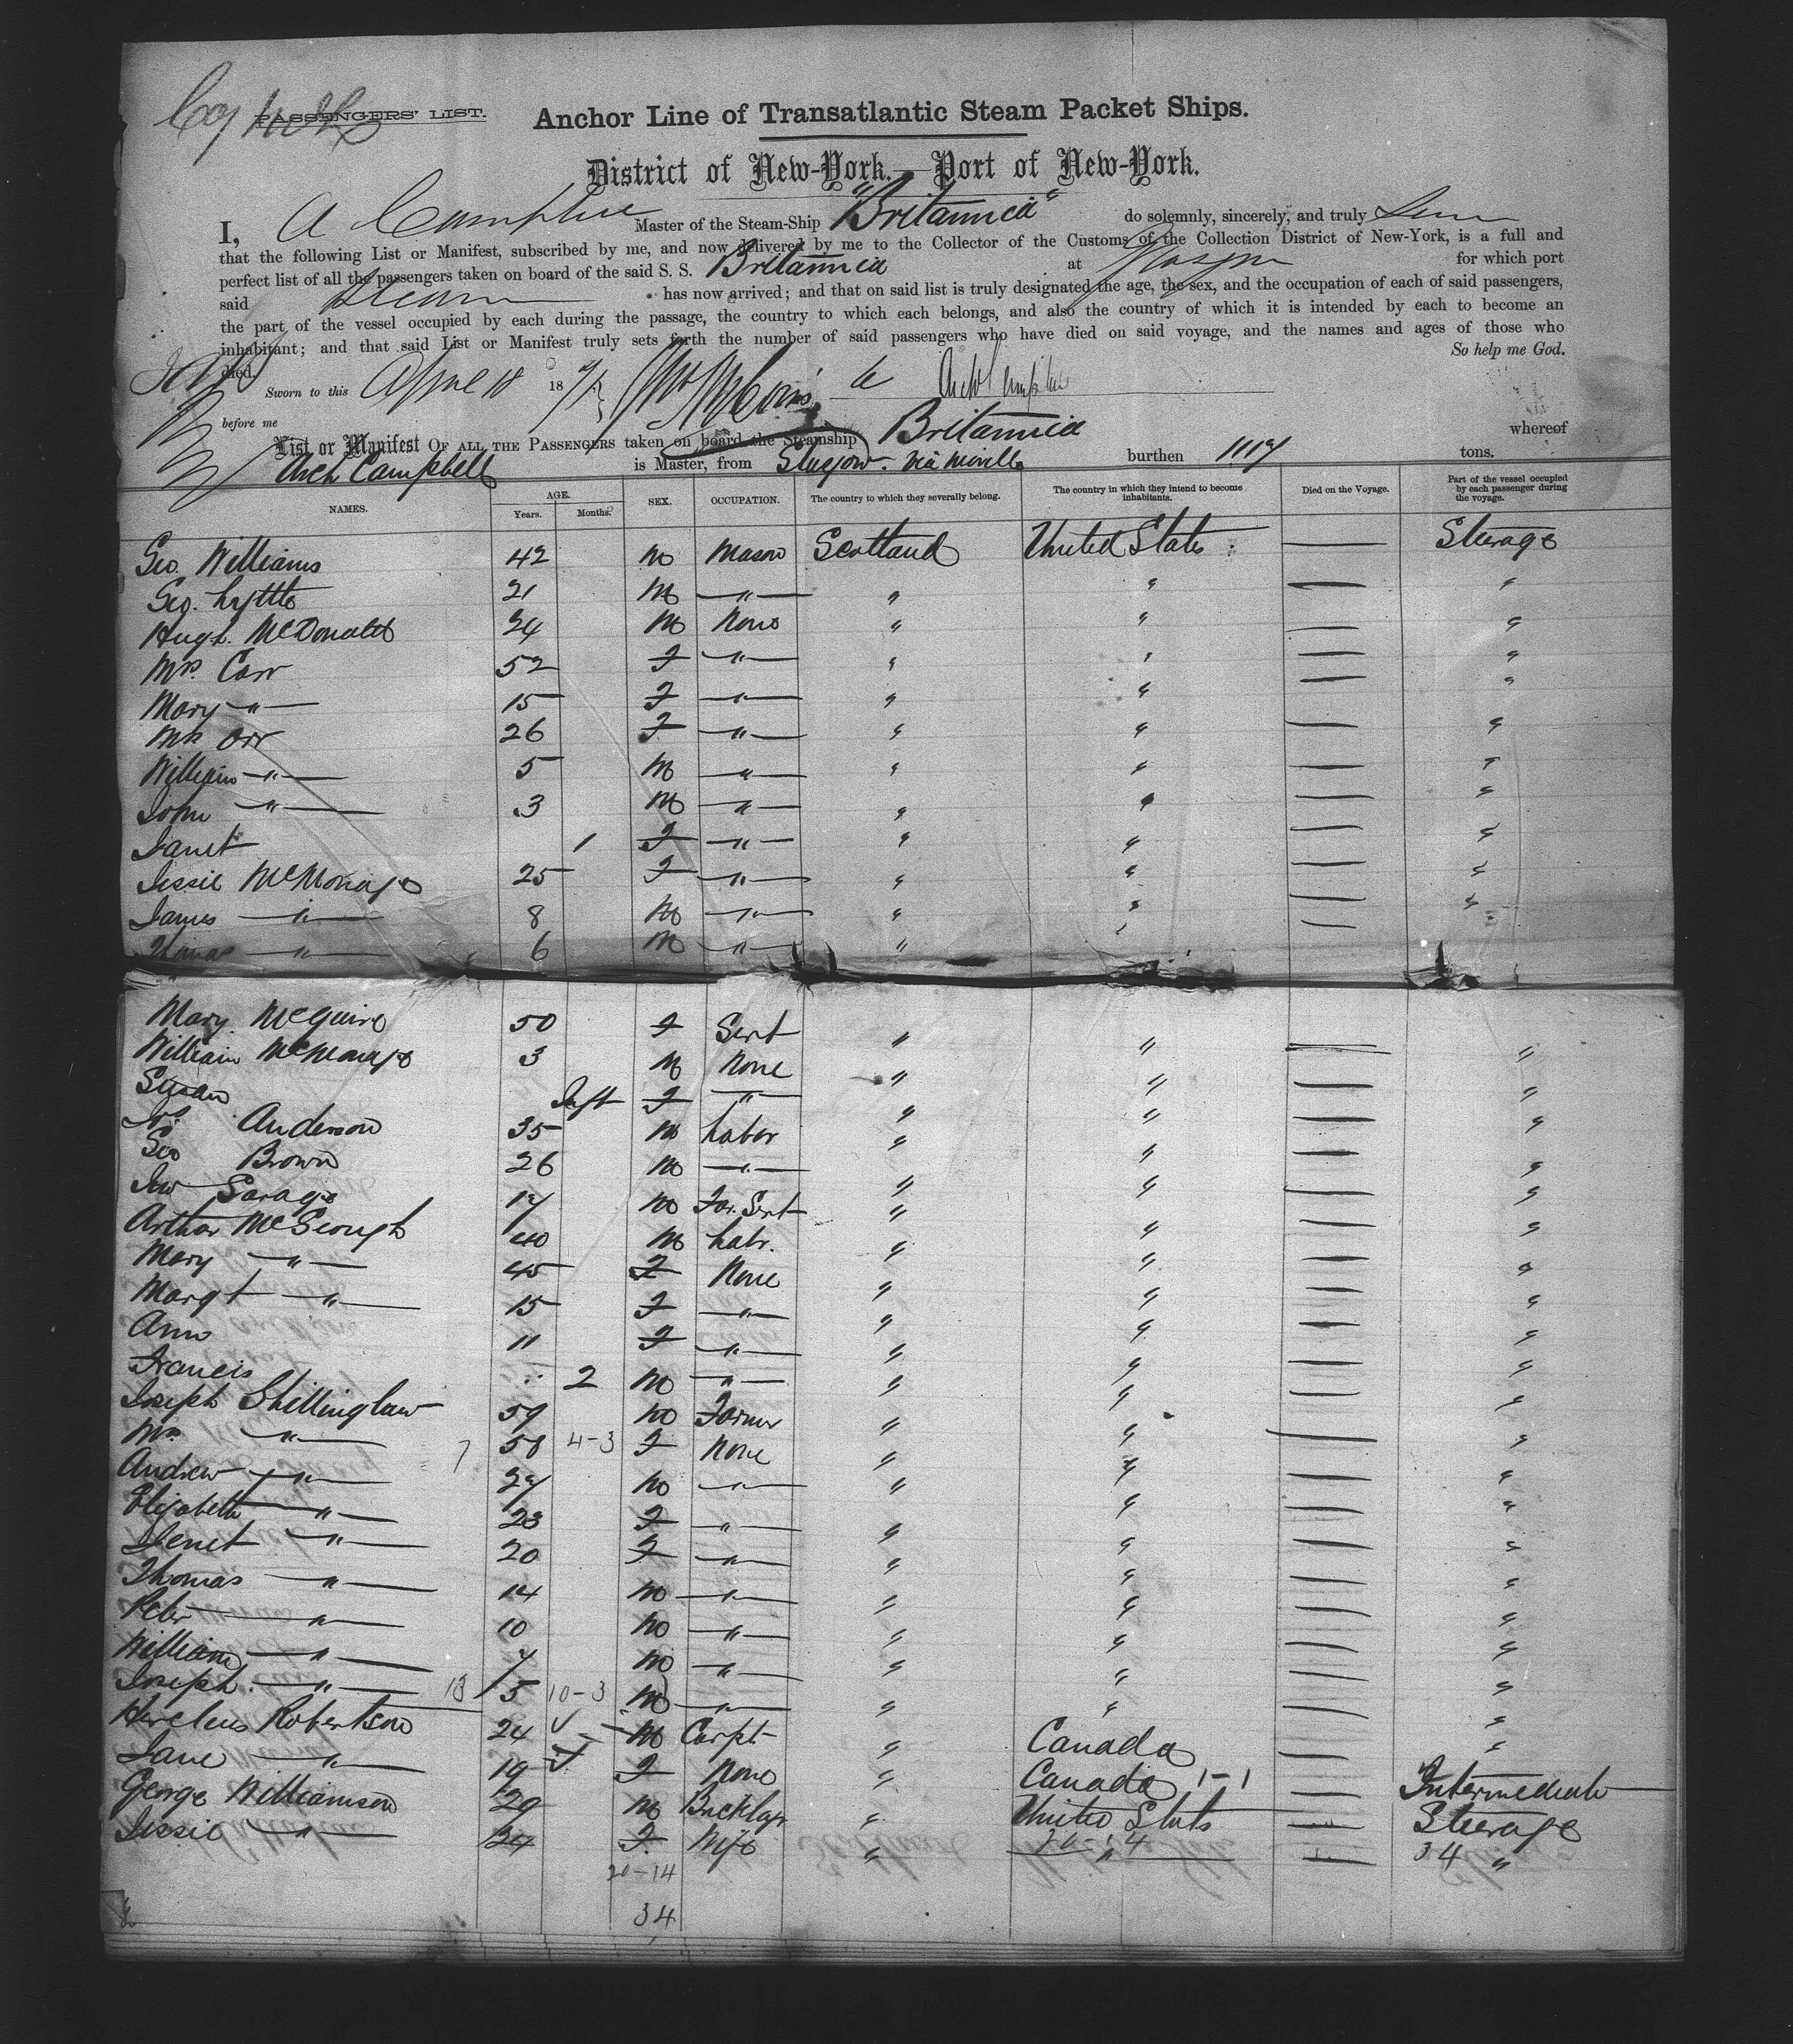 PASSENGERS' LIST.
Anchor Line of Transatlantic Steam Packet Ships.
District of New-York.—Port of New-York.
I, A Campbell Master of the Steam-Ship "Britannia" do solemnly, sincerely, and truly Swear
that the following List or Manifest, subscribed by me, and now delivered by me to the Collector of the Customs of the Collection District of New-York, is a full and
perfect list of all the passengers taken on board of the said S. S. Britannia at Glasgow for which port
said Steamer has now arrived; and that on said list is truly designated the age, the sex, and the occupation of each of said passengers,
the part of the vessel occupied by each during the passage, the country to which each belongs, and also the country of which it is intended by each to become an
inhabitant; and that said List or Manifest truly sets forth the number of said passengers who have died on said voyage, and the names and ages of those who
died. So help me God.
Sworn to this April 18 18
before me
List or Manifest OF ALL THE PASSENGERS taken on board the Steamship Britannia whereof
Arch Campbell is Master, from Glasgow. via Moville burthen 1119 tons.
NAMES. AGE. Years. Months. SEX. OCCUPATION. The country to which they severally belong. The country in which they intend to become inhabitants. Died on the Voyage. Part of the vessel occupied by each passenger during the voyage.
Geo. Williams 42 M Mason Scotland United States — Steerage
Geo. Lyttle 21 M —"— " " — "
Hugh McDonald 24 M None " " — "
Mrs. Carr 52 F —"— " " — "
Mary —"— 15 F —"— " " — "
Mrs Orr 26 F —"— " " — "
William —"— 5 M —"— " " — "
John —"— 3 M —"— " " — "
Janet 1 F —"— " " — "
Jessie McMonagle 25 F —"— " " — "
James —"— 8 M —"— " " — "
Thomas —"— 6 M —"— "
Mary McGuire 50 F Servt " " — "
William McMonagle 3 M None " " — "
Susan Inft F —"— " " — "
Anderson 35 M Labor " " — "
Geo Brown 26 M —"— " " — "
Savage 17 M Far. Servt " " — "
Arthur McGeough 40 M Labr. " " — "
Mary —"— 45 F None " " — "
Margt —"— 15 F —"— " " — "
Ann 11 F —"— " " — "
Francis 2 M —"— " " — "
Joseph Shillinglaw 59 M Farmer " " — "
Mrs —"— 7 58 4-3 F None " " — "
Andrew —"— 27 M —"— " " — "
Elizabeth —"— 23 F —"— " " — "
Jenet —"— 20 F —"— " " — "
Thomas —"— 14 M —"— " " — "
Peter —"— 10 M —"— " " — "
William —"— 7 M —"— " " — "
Joseph —"— 13 5 10-3 M —"— " " — "
Robertson 24 M Carpt " Canada — "
Jane —"— 19 F None " Canada 1-1 — Intermediate
George Williamson 29 M Bricklayr " United States — Steerage
Jessie —"— 24 F Wife " " — 34 "
20-14
34